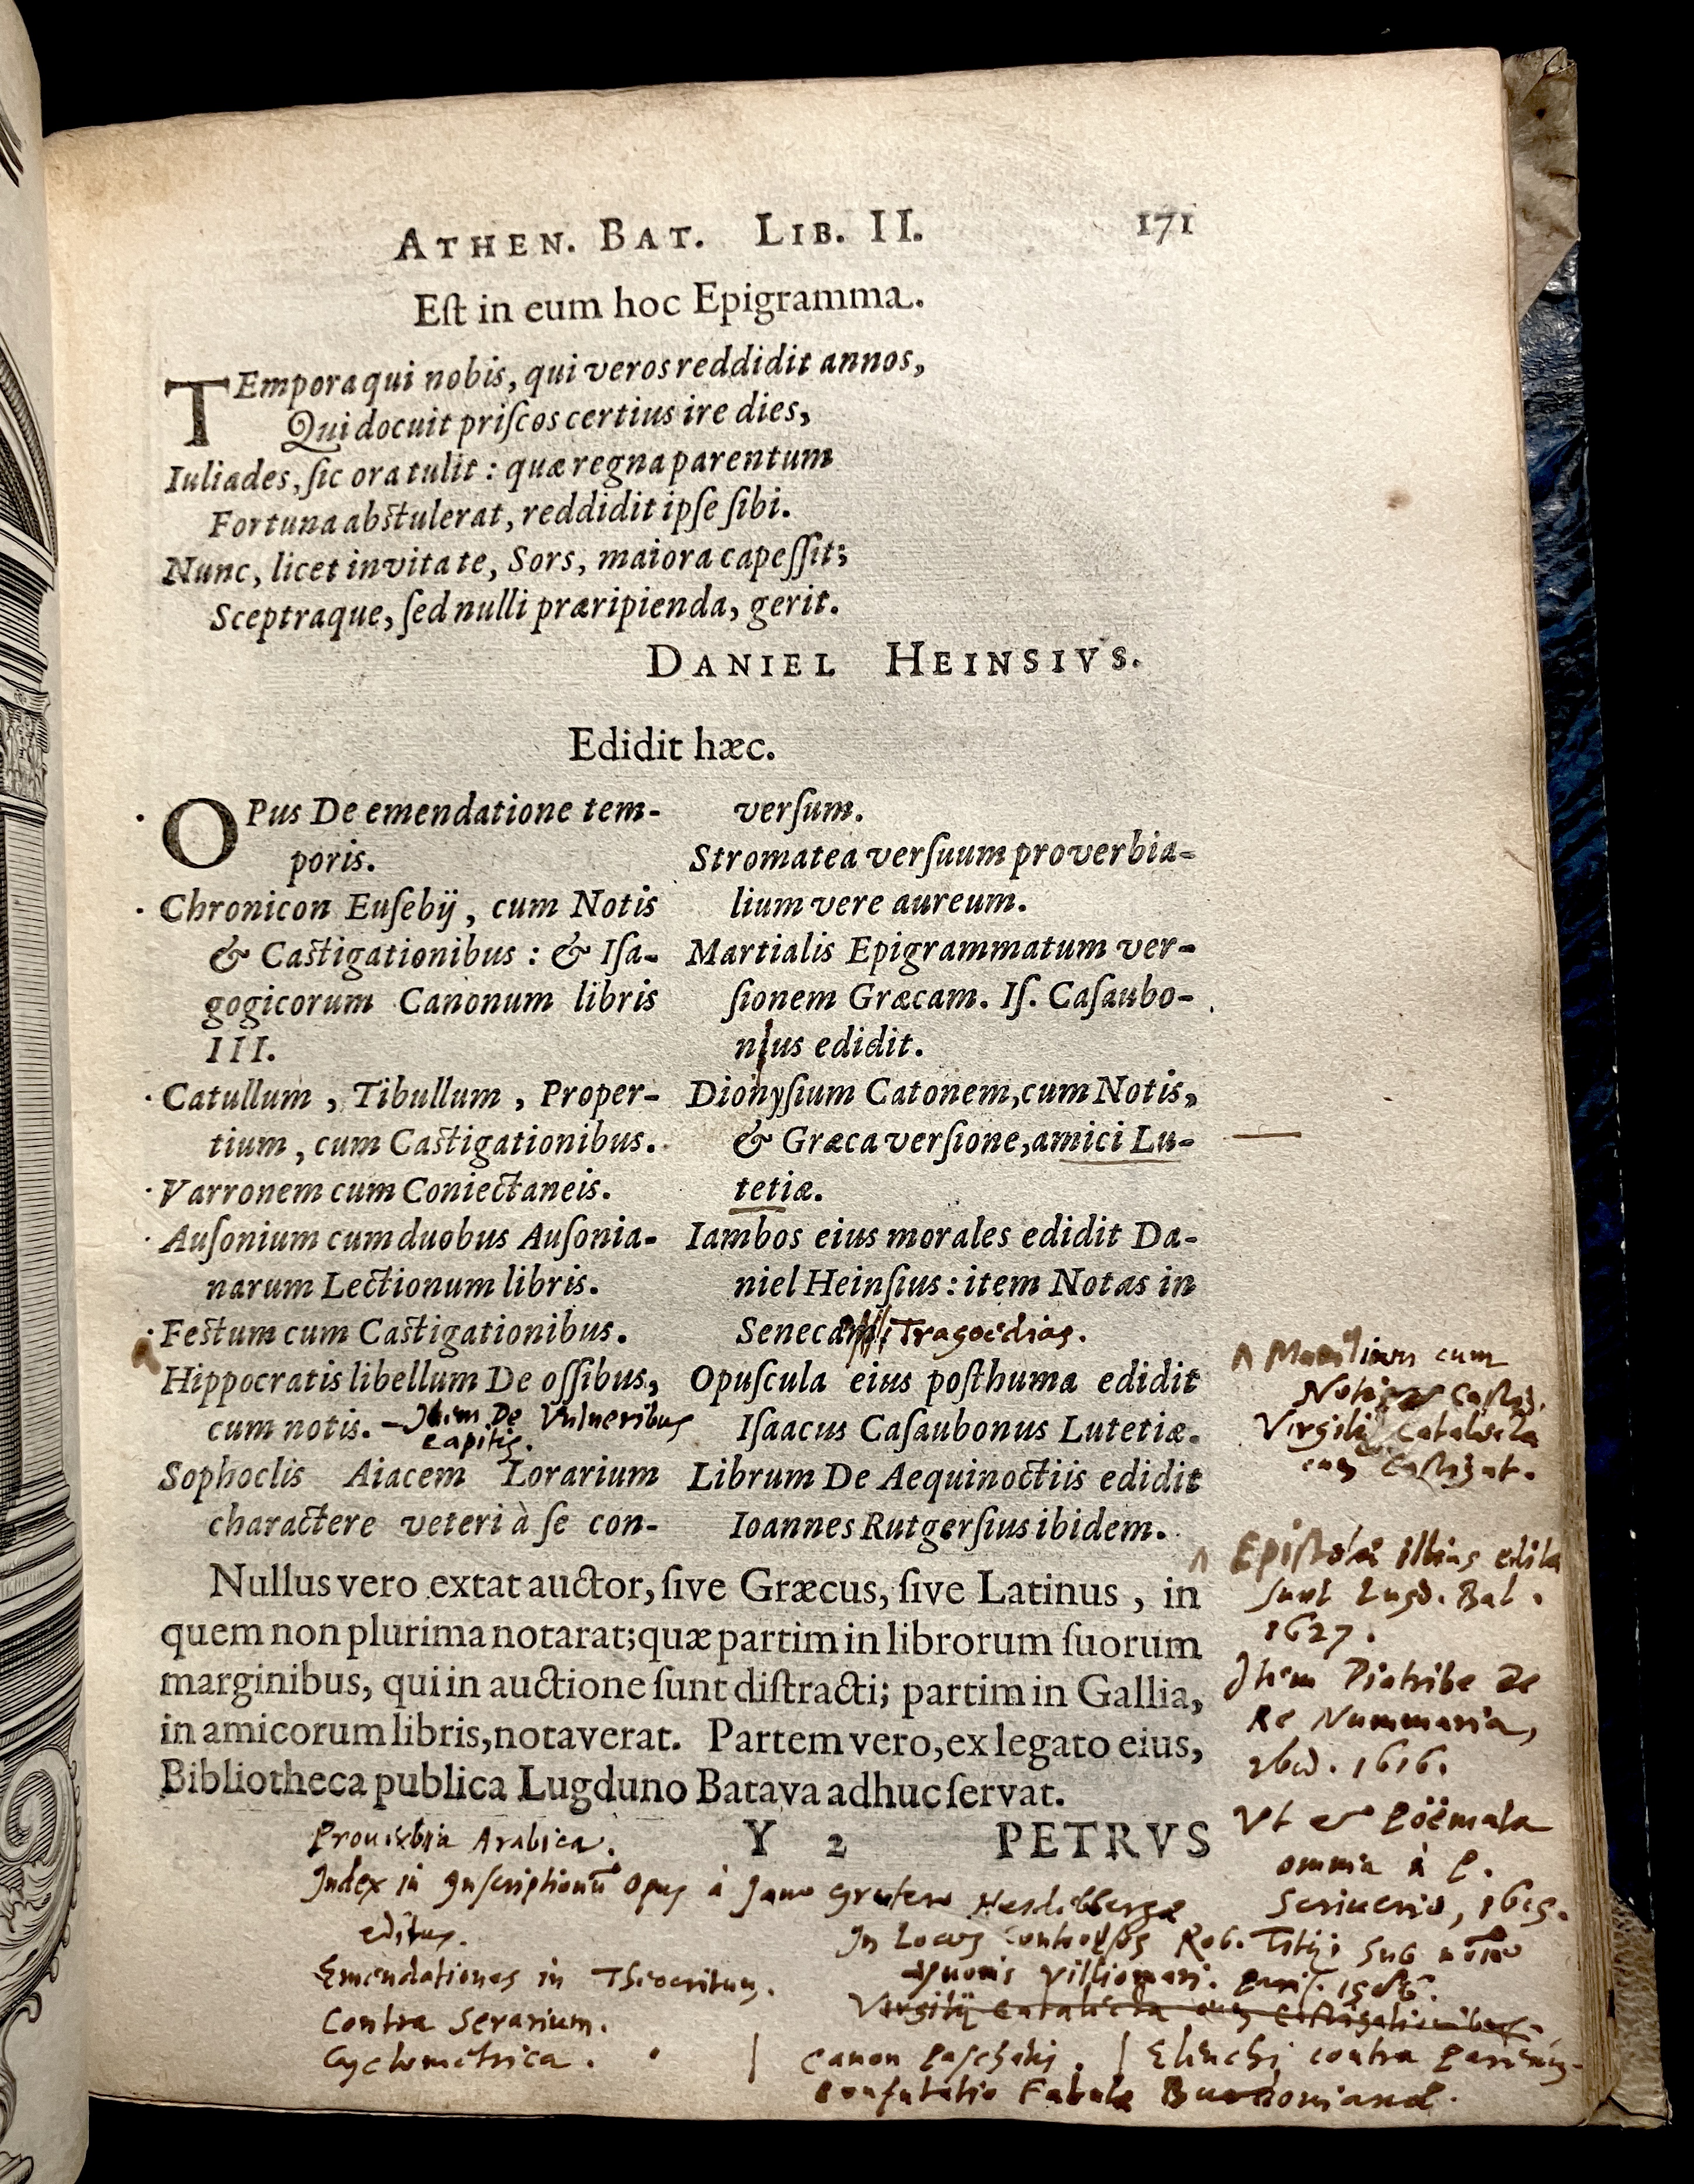 ATHEN. BAT. LIB. II. 171
Eſt in eum hoc Epigramma.
TEmpora qui nobis, qui veros reddidit annos,
Qui docuit priſcos certius ire dies,
Iuliades, ſic ora tulit : quæ regna parentum
Fortuna abſtulerat, reddidit ipſe ſibi.
Nunc, licet invita te, Sors, maiora capeſſit;
Sceptraque, ſed nulli præripienda, gerit.
DANIEL HEINSIVS.
Edidit hæc.
OPus De emendatione tem-
poris.
Chronicon Euſebij, cum Notis
& Caſtigationibus : & Iſa-
gogicorum Canonum libris
III.
Catullum, Tibullum, Proper-
tium, cum Caſtigationibus.
Varronem cum Coniectaneis.
Auſonium cum duobus Auſonia-
narum Lectionum libris.
Feſtum cum Caſtigationibus.
Hippocratis libellum De oſſibus,
cum notis. – Item De Vulneribus
capitis.
Sophoclis Aiacem Lorarium
charactere veteri à ſe con-
verſum.
Stromatea verſuum proverbia-
lium vere aureum.
Martialis Epigrammatum ver-
ſionem Græcam. Iſ. Caſaubo-
nus edidit.
Dionyſium Catonem, cum Notis,
& Græca verſione, amici Lu-
tetiæ.
Iambos eius morales edidit Da-
niel Heinſius : item Notas in
Senecam Tragoedias.
Opuscula eius poſthuma edidit
Iſaacus Caſaubonus Lutetiæ.
Librum De Aequinoctiis edidit
Ioannes Rutgerſius ibidem.
Manilium cum
Notis Castig.
Virgilij Catalecta
cum Castigat.
Nullus vero extat auctor, ſive Græcus, ſive Latinus, in
quem non plurima notarat; quæ partim in librorum ſuorum
marginibus, qui in auctione ſunt diſtracti; partim in Gallia,
in amicorum libris, notaverat. Partem vero, ex legato eius,
Bibliotheca publica Lugduno Batava adhuc ſervat.
Y 2 PETRVS
Epistolæ illius edita
sunt Lugd. Bat.
1627.
Item Diatribe De
Re Nummaria,
ibid. 1616.
Vt et Poëmata
omnia à P.
Scriuerio, 1615.
Prouerbia Arabica.
Index in Inscriptionũ Opus à Jano Grutero Heidelbergæ
editus.
Emendationes in Theocritum.
Contra Serarium.
Cyclometrica.
In Locos Controversos Rob. Titij, sub
Yuonis Villiomari. Paris. 1586.
Virgilij Catalecta cum Castigationibus.
Canon Paschalis. | Elenchi contra
Confutatio Fabulæ Burdonianæ.